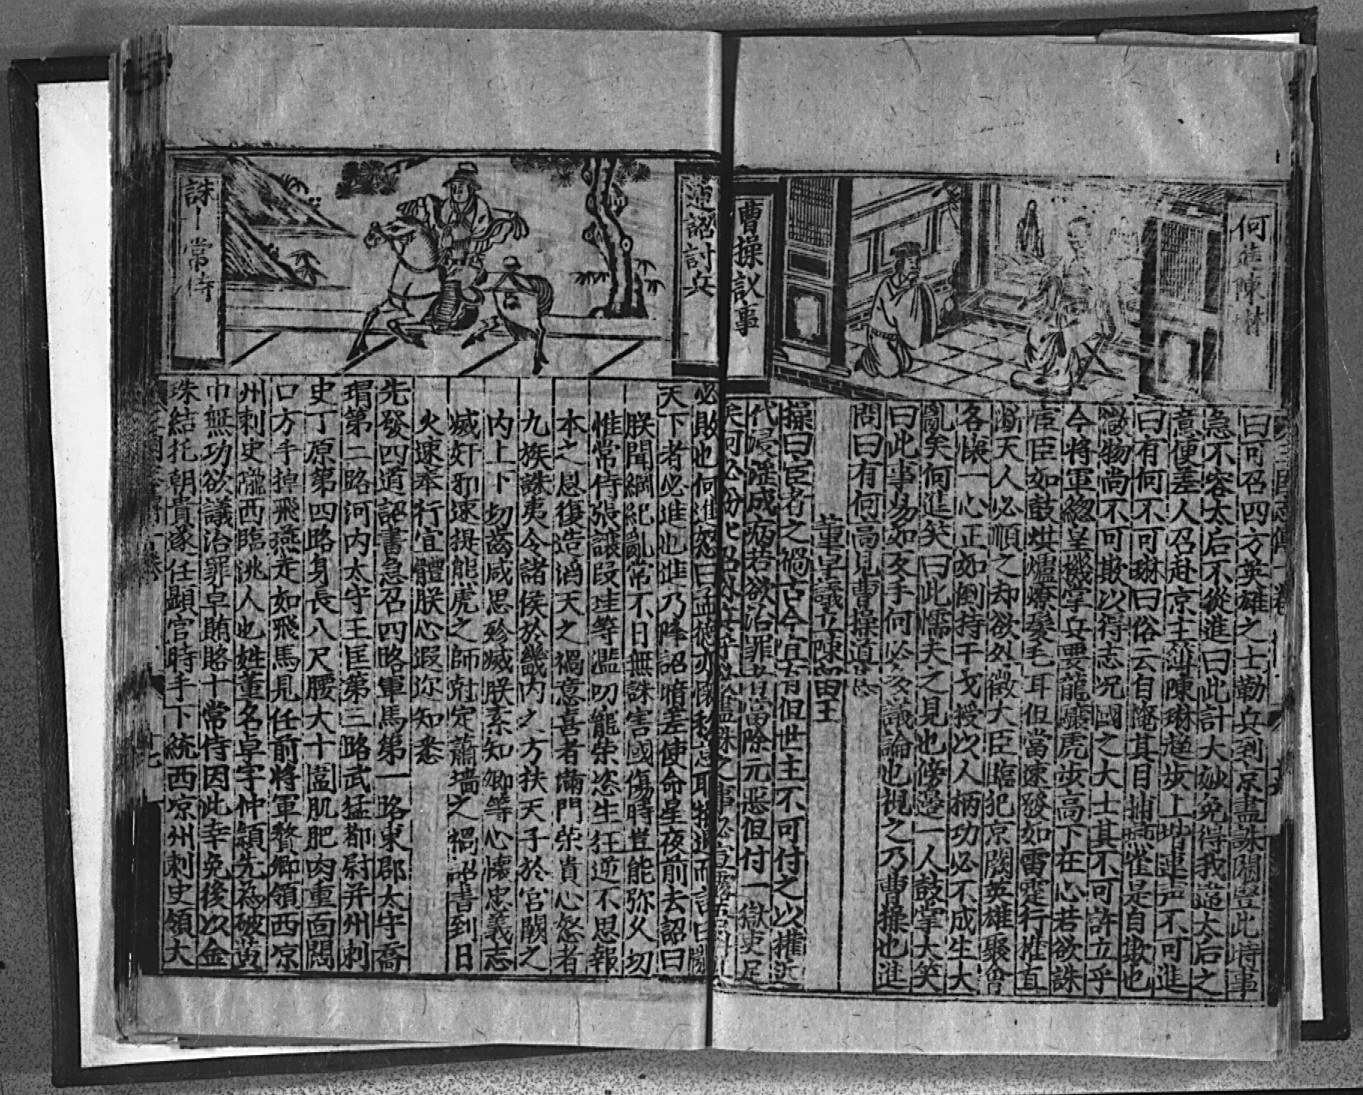 何進陳琳
曹操議事
曰可召四方英雄之士勒兵到京盡誅閹豎此時事
急不容太后不從進曰此計大妙免得我遣太后之
意便差人召赴京主簿陳琳趨步上堦連声不可進
曰有何不可琳曰俗云自掩其目捕燕雀是自欺也
微物尚不可欺以得志况國之大士其不可許立乎
今將軍緫皇機掌兵要龍驤虎步高下在心若欲誅
宦臣如鼓烘爐燎髮毛耳但當速發如雷霆行權直
断天人必順之却欲外徵大臣臨犯京闕英雄聚會
各懐一心正如倒持干戈授以人柄功必不成生大
亂矣何進笑曰此懦夫之見也傍邊一人鼓掌大笑
曰此事易如反手何必多議論也視之乃曹操也進
問曰有何高見曹操道
董卓議立陳留王
操曰臣宦之禍古今皆有但世主不可付之以權近
代浸滛成病若欲治罪當除元惡但付一獄吏足
矣何必紛紛召外兵乎欲盡誅之事必宣露吾料其
遣詔討兵
誅十常侍
必敗也何進怒曰孟德亦懐私意耶操退而言曰亂
天下者必進也進乃降詔暗差使命星夜前去詔曰
朕聞綱紀亂常不日無誅害國傷時豈能弥久切
惟常侍張讓段珪等濫叨寵榮恣生狂逆不思報
本之恩復造滔天之禍意喜者滿門荣貴心怒者
九族誅夷今諸侯於畿内之方扶天子於宮闕之
内上下切齒咸思殄滅朕素知卿等心懐忠義志
滅奸邪速提熊虎之師尅定蕭墻之禍詔書到日
火速奉行宜體朕心遐迩知悉
先發四道詔書急召四路軍馬第一路東郡太守喬
瑁第二路河内太守王匡第三路武猛都尉并州刺
史丁原第四路身長八尺腰大十圍肌肥肉重面闊
口方手掉飛燕走如飛馬見任前將軍鰲鄉領西凉
州刺史隴西臨洮人也姓董名卓字仲頴先為破黄
巾無功欲議治罪卓賄賂十常侍因此幸免後以金
珠結托朝貴遂任顯官時手下統西凉州刺史領大